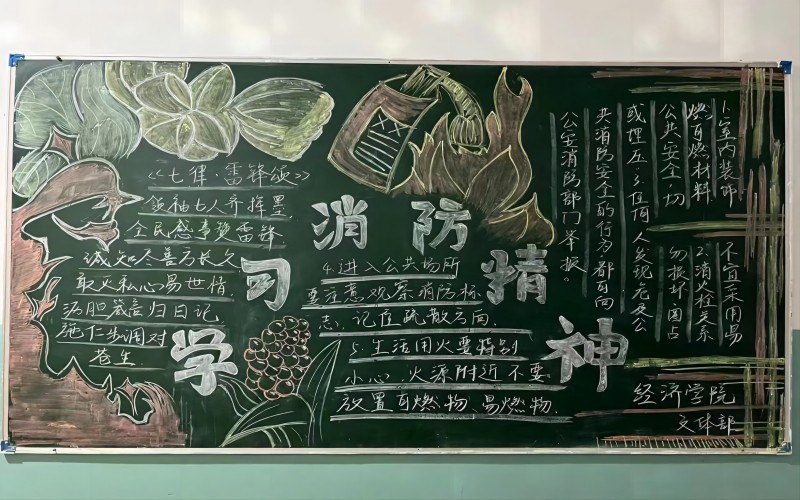 学习消防精神
《七律·雷锋颂》
领袖七人齐挥墨
全民感事觉雷锋
诚知尽善方长久
敢灭私心易世情
沥胆篇章归日记
施仁步调对
苍生
4.进入公共场所
要注意观察消防标
志,记住疏散方向
5.生活用火要特别
小心,火源附近不要
放置可燃物、易燃物.
1.室内装饰不宜采用易
燃可燃材料2.消火栓关系
公共安全,切勿损坏、圈占
或埋压.3任何人发现危及公
共消防安全的行为都可向
公安消防部门举报。
经济学院
文体部